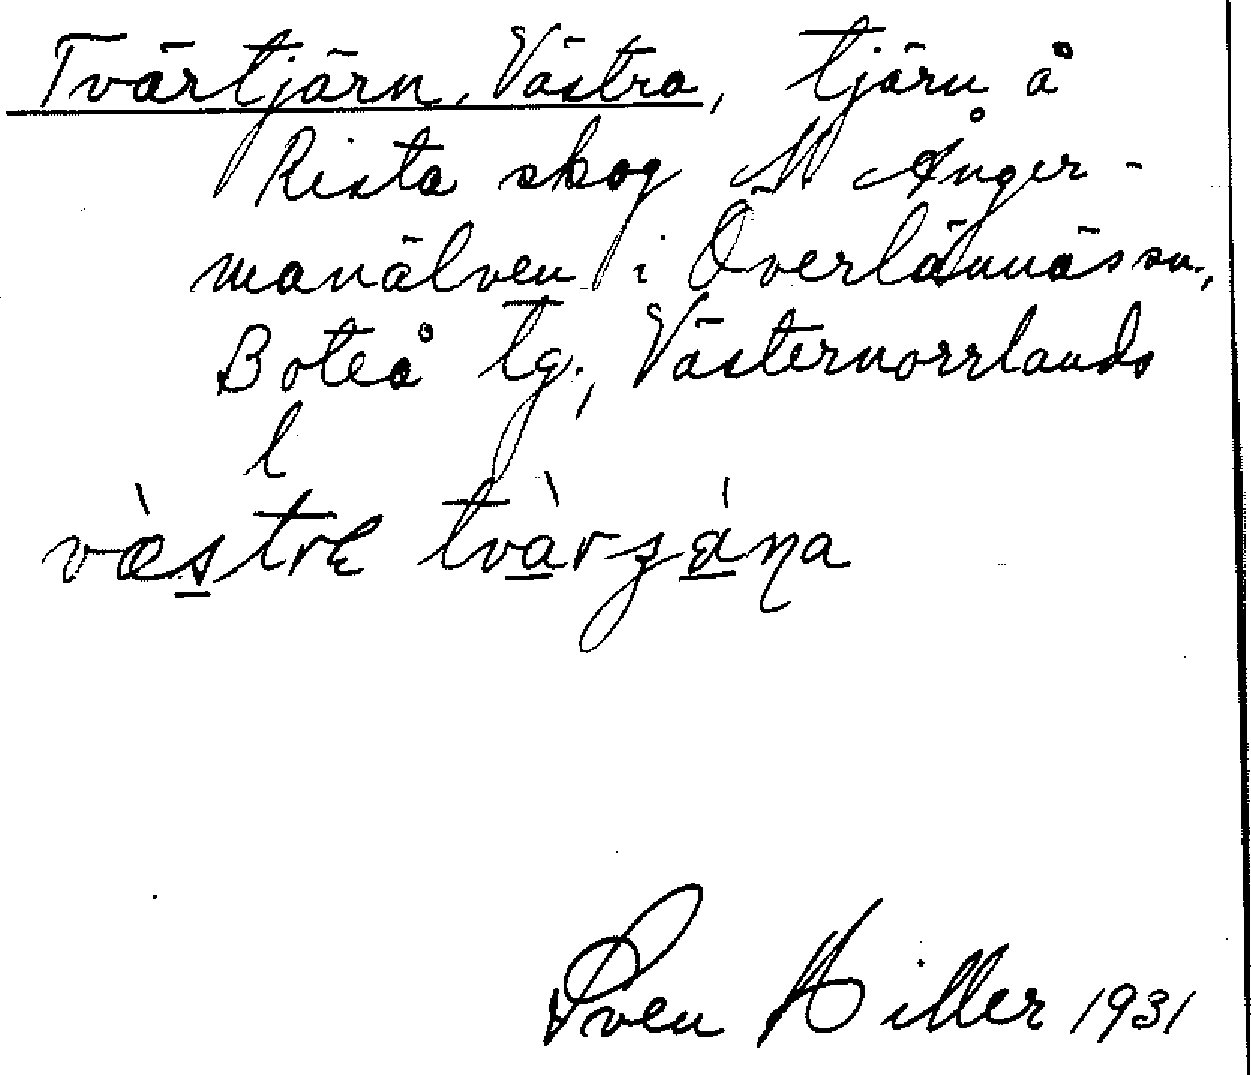 Tvärtjärn, Västra, tjärn å
Rista skog N Ånger-
manälven i Överlännäs sn,
Boteå tg., Västernorrlands
l
Sven Hiller 1931